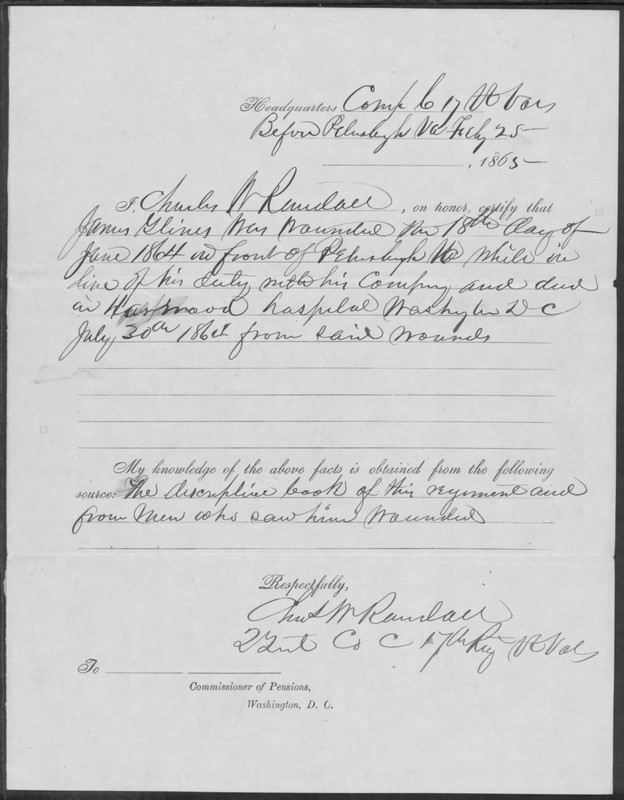 Headquarters Comp C 17 Vt Vols
Before Petersburgh Va Feby 25
, 1865
I, Charles W Randall, on honor, certify that
James Glines was wounded the 18th day of
June 1864 in front of Petersburgh Va while in
line of his duty with his Company and died
in Harewood hospital Washington D C
July 30th 1864 from said wounds
My knowledge of the above facts is obtained from the following
source: The discriptive book of this regiment and
from men who saw him wounded
Respectfully,
Chas W Randall
2 Lieut Co C 17th Reg Vt Vols
To
Commissioner of Pensions,
Washington, D. C.